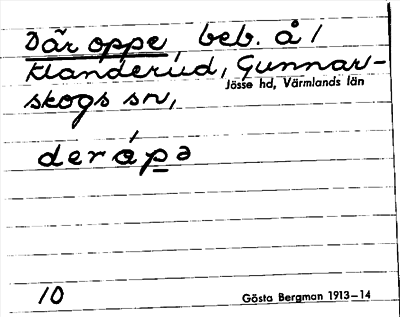 Där oppe, beb. å /
Klanderud, Gunnar-
skogs sn,
Jösse hd, Värmlands län
der ápə
10
Gösta Bergman 1913–14